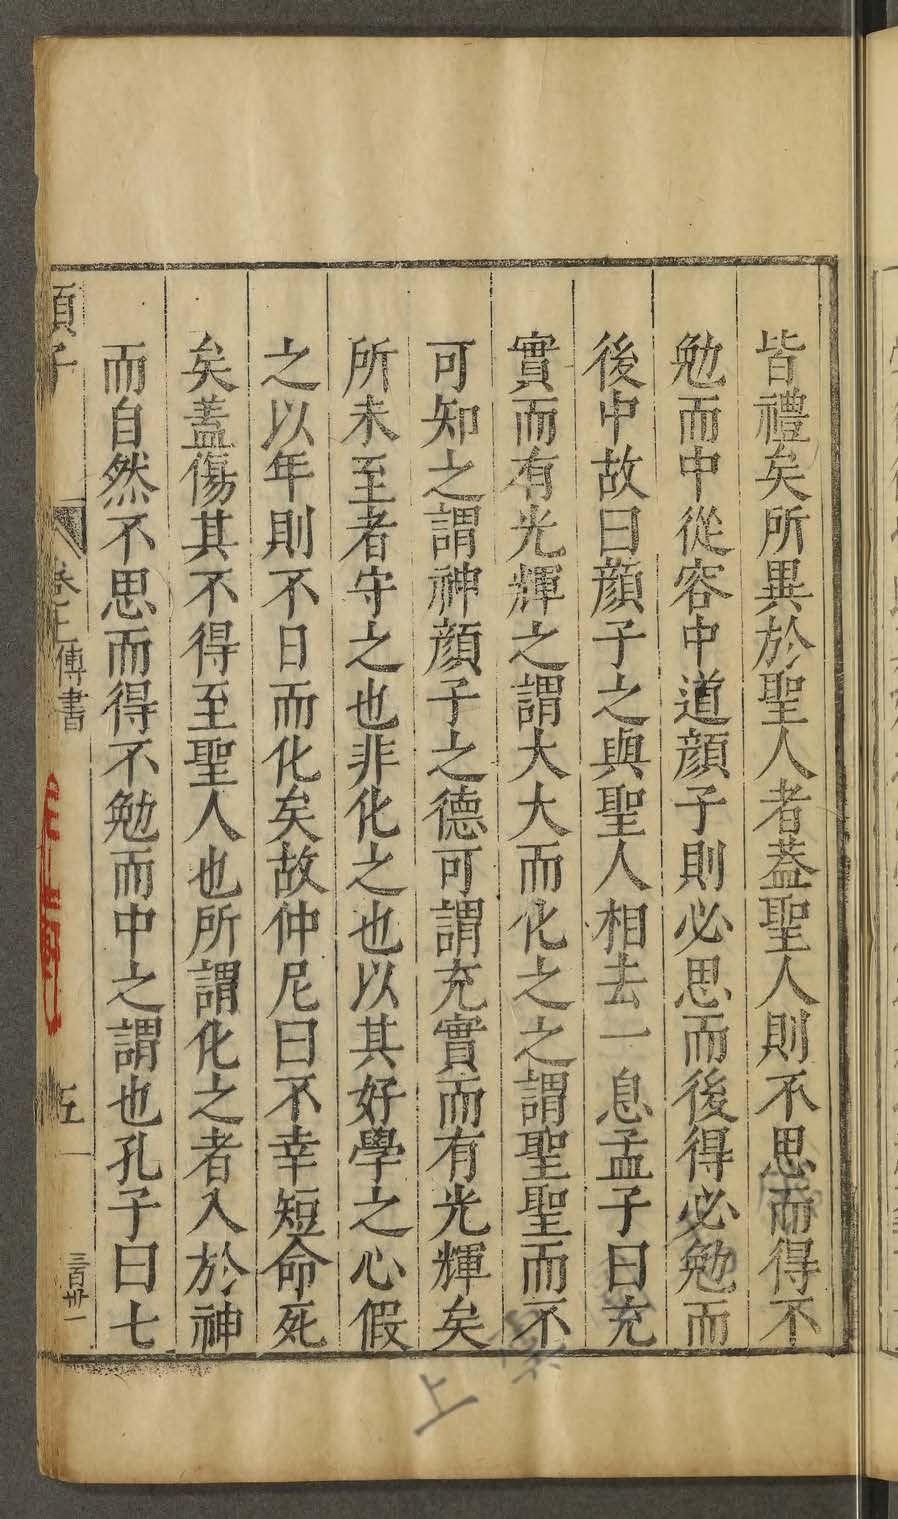 皆禮矣所異於聖人者蓋聖人則不思而得不
勉而中從容中道顔子則必思而後得必勉而
後中故曰顔子之與聖人相去一息孟子曰充
實而有光輝之謂大大而化之之謂聖聖而不
可知之謂神顔子之德可謂充實而有光輝矣
所未至者守之也非化之也以其好學之心假
之以年則不日而化矣故仲尼曰不幸短命死
矣蓋傷其不得至聖人也所謂化之者入於神
而自然不思而得不勉而中之謂也孔子曰七
子
傳書
五
三百卅一
上